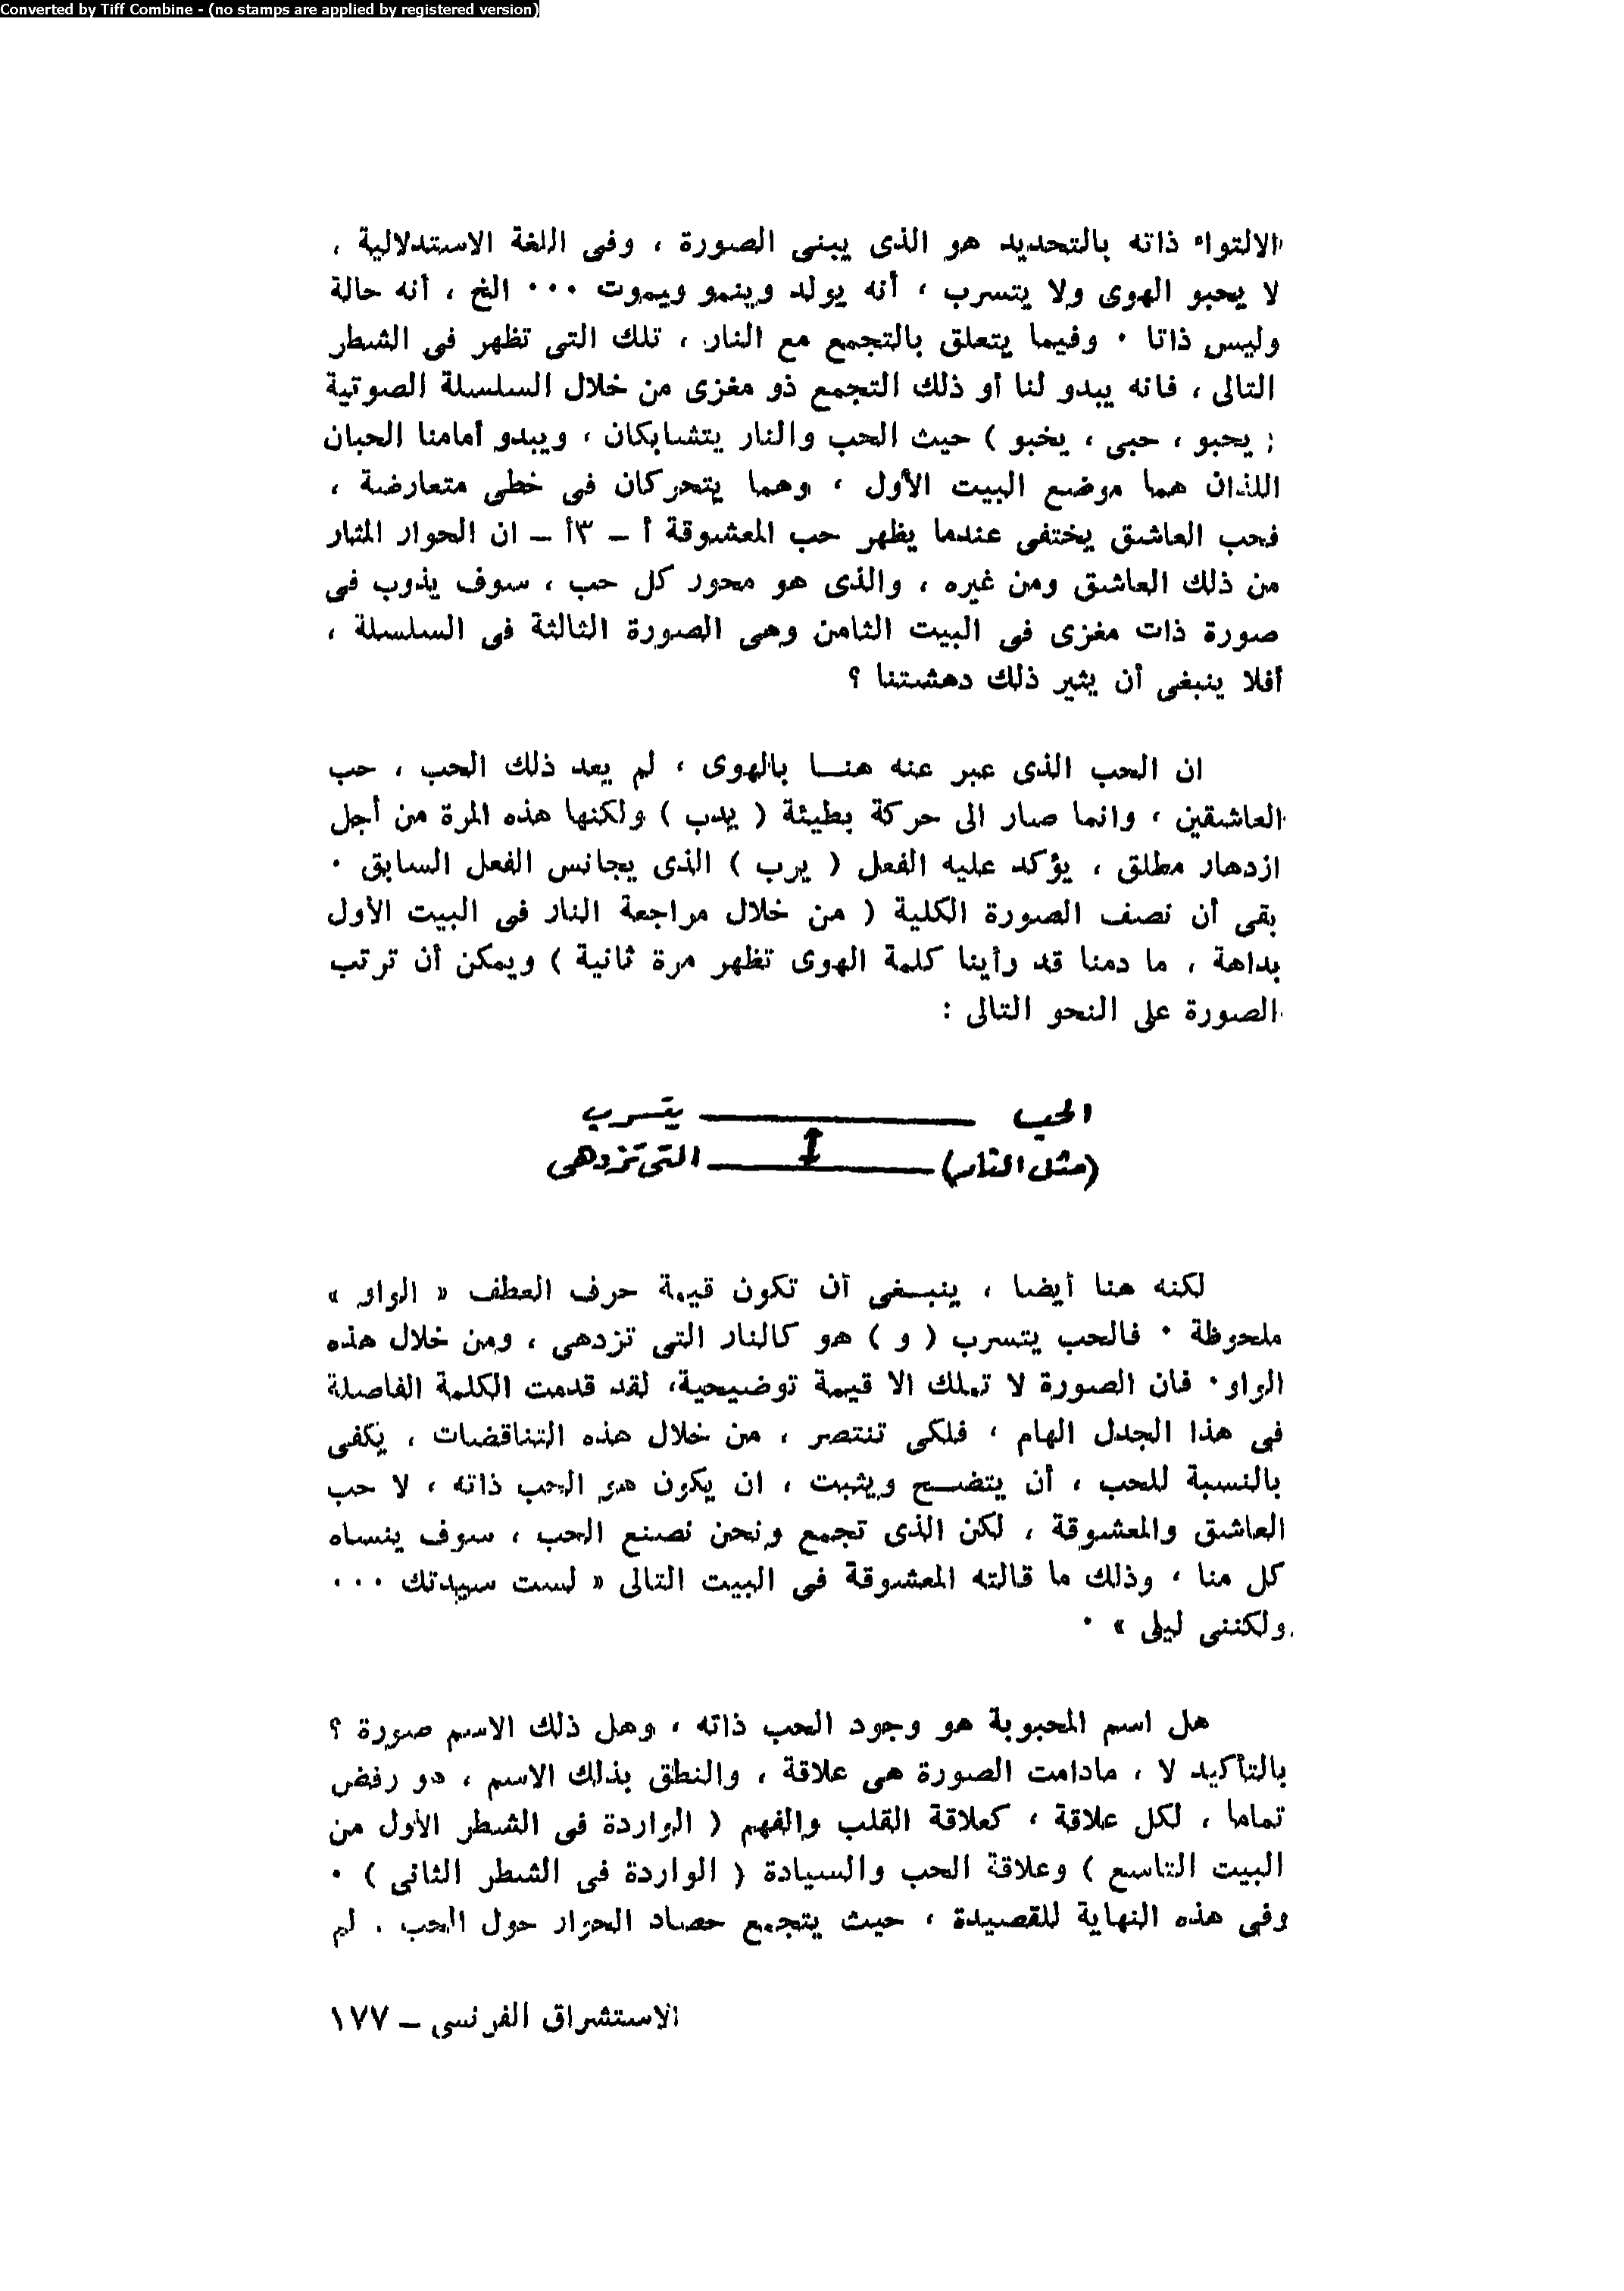 Converted by Tiff Combine - (no stamps are applied by registered version)
الالتواء ذاته بالتحديد هو الذى يبنى الصورة ، وفى اللغة الاستدلالية ،
لا يحبو الهوى ولا يتسرب ، أنه يولد وينمو ويموت ٠٠٠ الخ ، أنه حالة
وليس ذاتا ٠ وفيما يتعلق بالتجمع مع النار ، تلك التى تظهر فى الشطر
التالى ، فانه يبدو لنا أو ذلك التجمع ذو مغزى من خلال السلسلة الصوتية
( يحبو ، حبى ، يخبو ) حيث الحب والنار يتشابكان ، ويبدو أمامنا الحبان
اللذان هما موضع البيت الأول ، وهما يتحركان فى خطى متعارضة ،
فحب العاشق يختفى عندما يظهر حب المعشوقة أ – ٣أ – ان الحوار المثار
من ذلك العاشق ومن غيره ، والذى هو محور كل حب ، سوف يذوب فى
صورة ذات مغزى فى البيت الثامن وهى الصورة الثالثة فى السلسلة ،
أفلا ينبغى أن يثير ذلك دهشتنا ؟
ان الحب الذى عبر عنه هنا بالهوى ، لم يعد ذلك الحب ، حب
العاشقين ، وانما صار الى حركة بطيئة ( يدب ) ولكنها هذه المرة من أجل
ازدهار مطلق ، يؤكد عليه الفعل ( يرب ) الذى يجانس الفعل السابق ٠
بقى أن نصف الصورة الكلية ( من خلال مراجعة النار فى البيت الأول
بداهة ، ما دمنا قد رأينا كلمة الهوى تظهر مرة ثانية ) ويمكن أن ترتب
الصورة على النحو التالى :
الحب ——— يتسرب
(مثل النار) ——— التى تزدهى
لكنه هنا أيضا ، ينبغى أن تكون قيمة حرف العطف « الواو »
ملحوظة ٠ فالحب يتسرب ( و ) هو كالنار التى تزدهى ، ومن خلال هذه
الواو ٠ فان الصورة لا تملك الا قيمة توضيحية، لقد قدمت الكلمة الفاصلة
فى هذا الجدل الهام ، فلكى تنتصر ، من خلال هذه التناقضات ، يكفى
بالنسبة للحب ، أن يتضح ويثبت ، ان يكون هو الحب ذاته ، لا حب
العاشق والمعشوقة ، لكن الذى تجمع ونحن نصنع الحب ، سوف ينساه
كل منا ، وذلك ما قالته المعشوقة فى البيت التالى « لست سيدتك ٠٠٠
ولكننى ليلى » ٠
هل اسم المحبوبة هو وجود الحب ذاته ، وهل ذلك الاسم صورة ؟
بالتأكيد لا ، مادامت الصورة هى علاقة ، والنطق بذلك الاسم ، هو رفض
تماما ، لكل علاقة ، كعلاقة القلب والفهم ( الواردة فى الشطر الأول من
البيت التاسع ) وعلاقة الحب والسيادة ( الواردة فى الشطر الثانى ) ٠
وفى هذه النهاية للقصيدة ، حيث يتجمع حصاد الحوار حول الحب ، لم
الاستشراق الفرنسى – ١٧٧